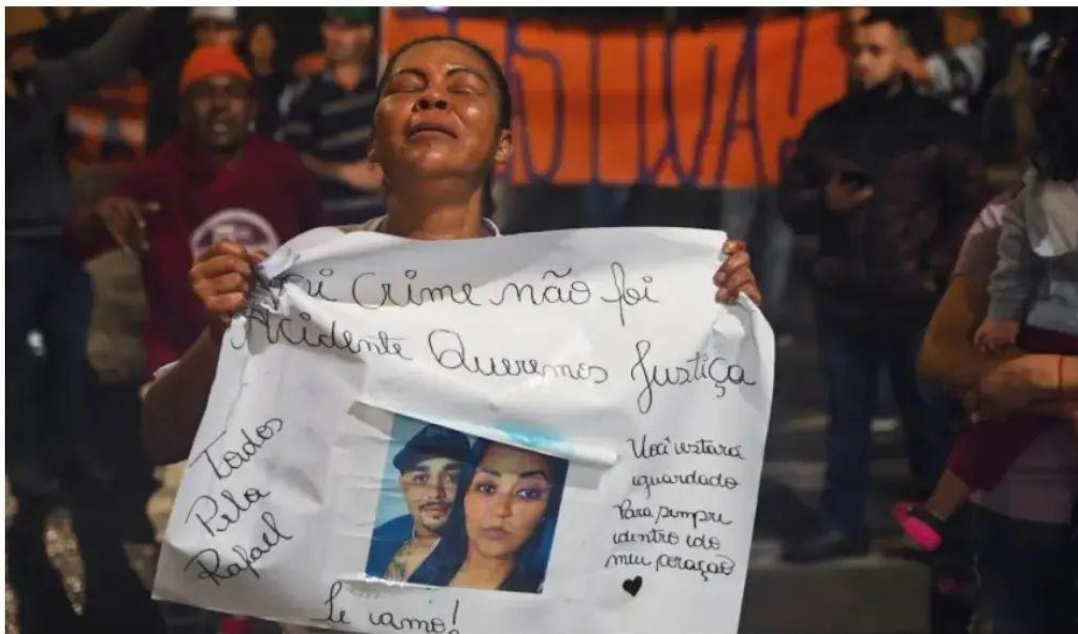 JUSTIÇA!
Foi Crime não foi
Acidente Queremos Justiça
Todos
Pela
Rafael
Você estará
guardado
Para sempre
dentro do
meu coração
Te amo!